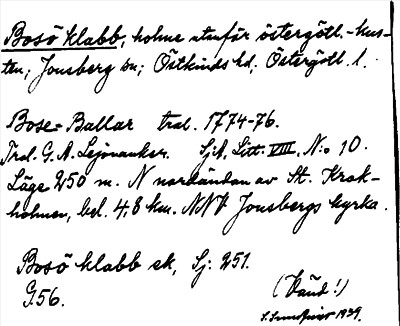 Bosö klabb, holme utanför östergötl.-kus-
ten; Jonsberg sn; Östkinds hd, Östergötl. l.
Bose=Ballar trol. 1774-76.
Trol. G. A. Lejonanker. SjK, Litt. VIII, N:o 10.
Läge 250 m. N nordändan av St. Krok-
holmen, bel. 4,8 km. NNV Jonsbergs kyrka.
Bosö klabb ek, Sj: 251.
G56.
(Vänd!)
1939.